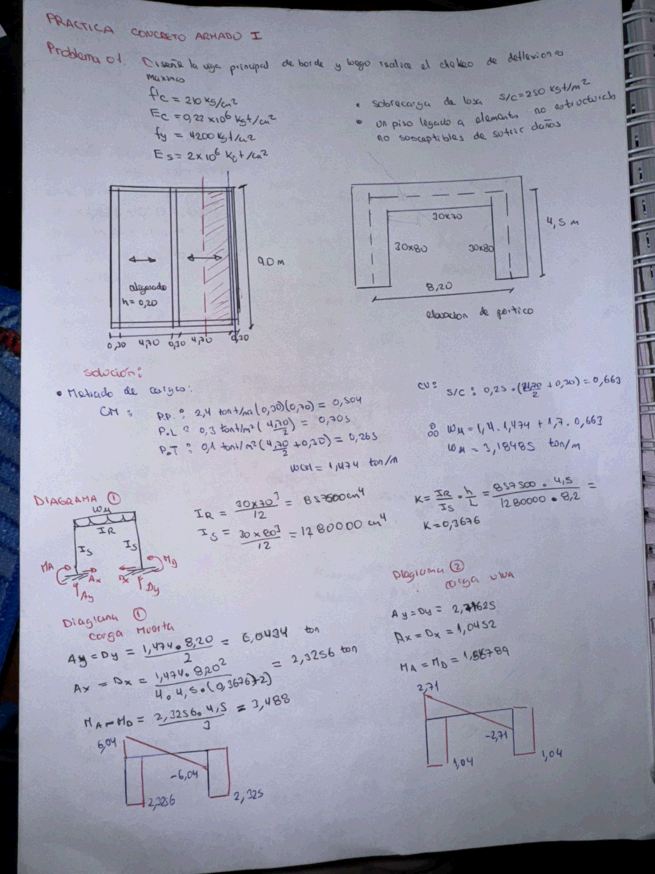 PRACTICA CONCRETO ARMADO I
Problema 01. Diseñe la viga principal de borde y luego realice el chekeo de deflexiones
maximo
f'c = 210 kg/cm²
Ec = 0,22 x10⁶ kgf/cm²
fy = 4200 kgf/cm²
Es = 2x10⁶ kgf/cm²
• sobrecarga de losa s/c = 250 kgf/m²
• un piso legado a elemento no estructurado
no susceptibles de sufrir daños
aligerado
h = 0,20
9.0 m
0,30 4,70 0,30 4,70 0,30
30x70
30x80
30x80
4,5 m
8,20
elevacion de portico
Solución:
• Metrado de cargas:
CM:
P.P. : 2,4 tonf/m3 (0,30)(0,70) = 0,504
P.L : 0,3 tonf/m² (4,70/2) = 0,705
P.T : 0,1 tonf/m² (4,70/2 + 0,30) = 0,265
WCM = 1,474 ton/m
CV: s/c : 0,25 · (4,70/2 + 0,30) = 0,663
∴ Wu = 1,4 . 1,474 + 1,7 . 0,663
Wu = 3,18485 ton/m
DIAGRAMA ①
Wu
IR
Is Is
MA Ax Dx MD
Ay Dy
IR = 30x70³/12 = 857500 cm⁴
Is = 30x80³/12 = 1280000 cm⁴
K = IR/Is • h/L = 857500 • 4,5/1280000 • 8,2 =
K = 0,3676
Diagrama ①
carga Muerta
Ay = Dy = 1,474 • 8,20/2 = 6,0434 ton
Ax = Dx = 1,474 • 8,20²/4 • 4,5 • (0,3676+2) = 2,3256 ton
MA = MD = 2,3256 • 4,5/3 = 3,488
6,04
-6,04
2,3256
2,325
Diagrama ②
carga viva
Ay = Dy = 2,71625
Ax = Dx = 1,0452
MA = MD = 1,56789
2,71
-2,71
1,04
1,04